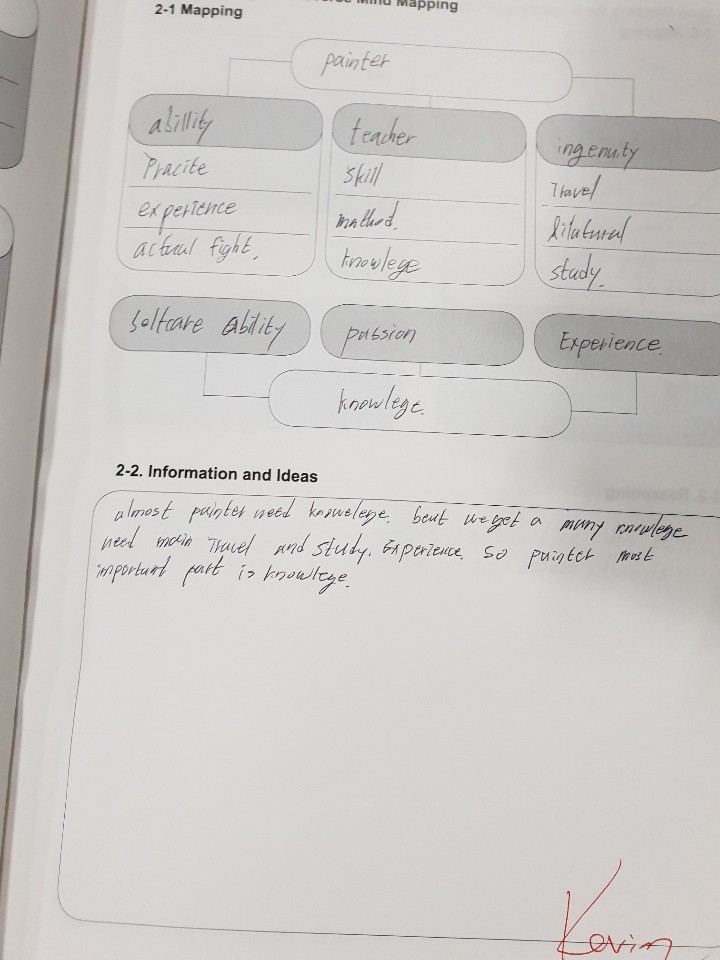 Mind Mapping
2-1 Mapping
painter
abillity
teacher
ingenuity
Pracite
skill
Travel
experience
mathod.
lilatural
actual fight.
knowlege
study.
Seltcare Ability
passion
Experience.
knowlege.
2-2. Information and Ideas
almost painter need knowelege. beut we get a many knowlege
need main Travel and study. Experience. so painter most
important part is knowlege.
Kevin